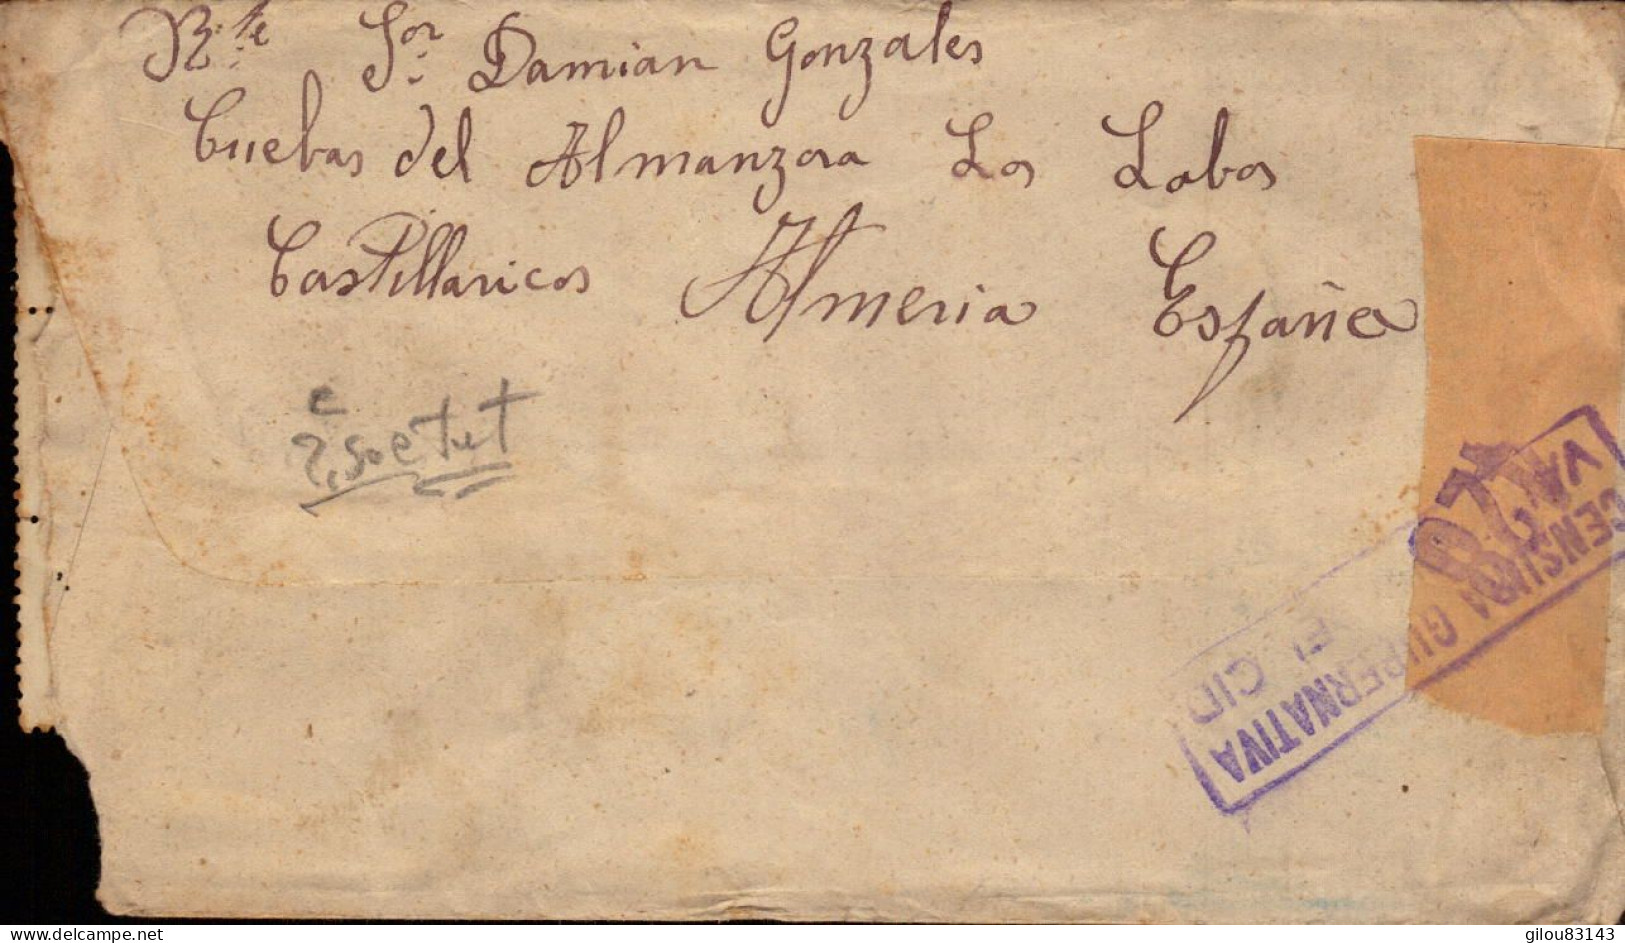 Rte Sor Damian Gonzales
Cuebas del Almanzora Los Lobos
Castillaricos Almeria España
CENSURA GUBERNATIVA
DEL CID
delcampe.net
gilou83143